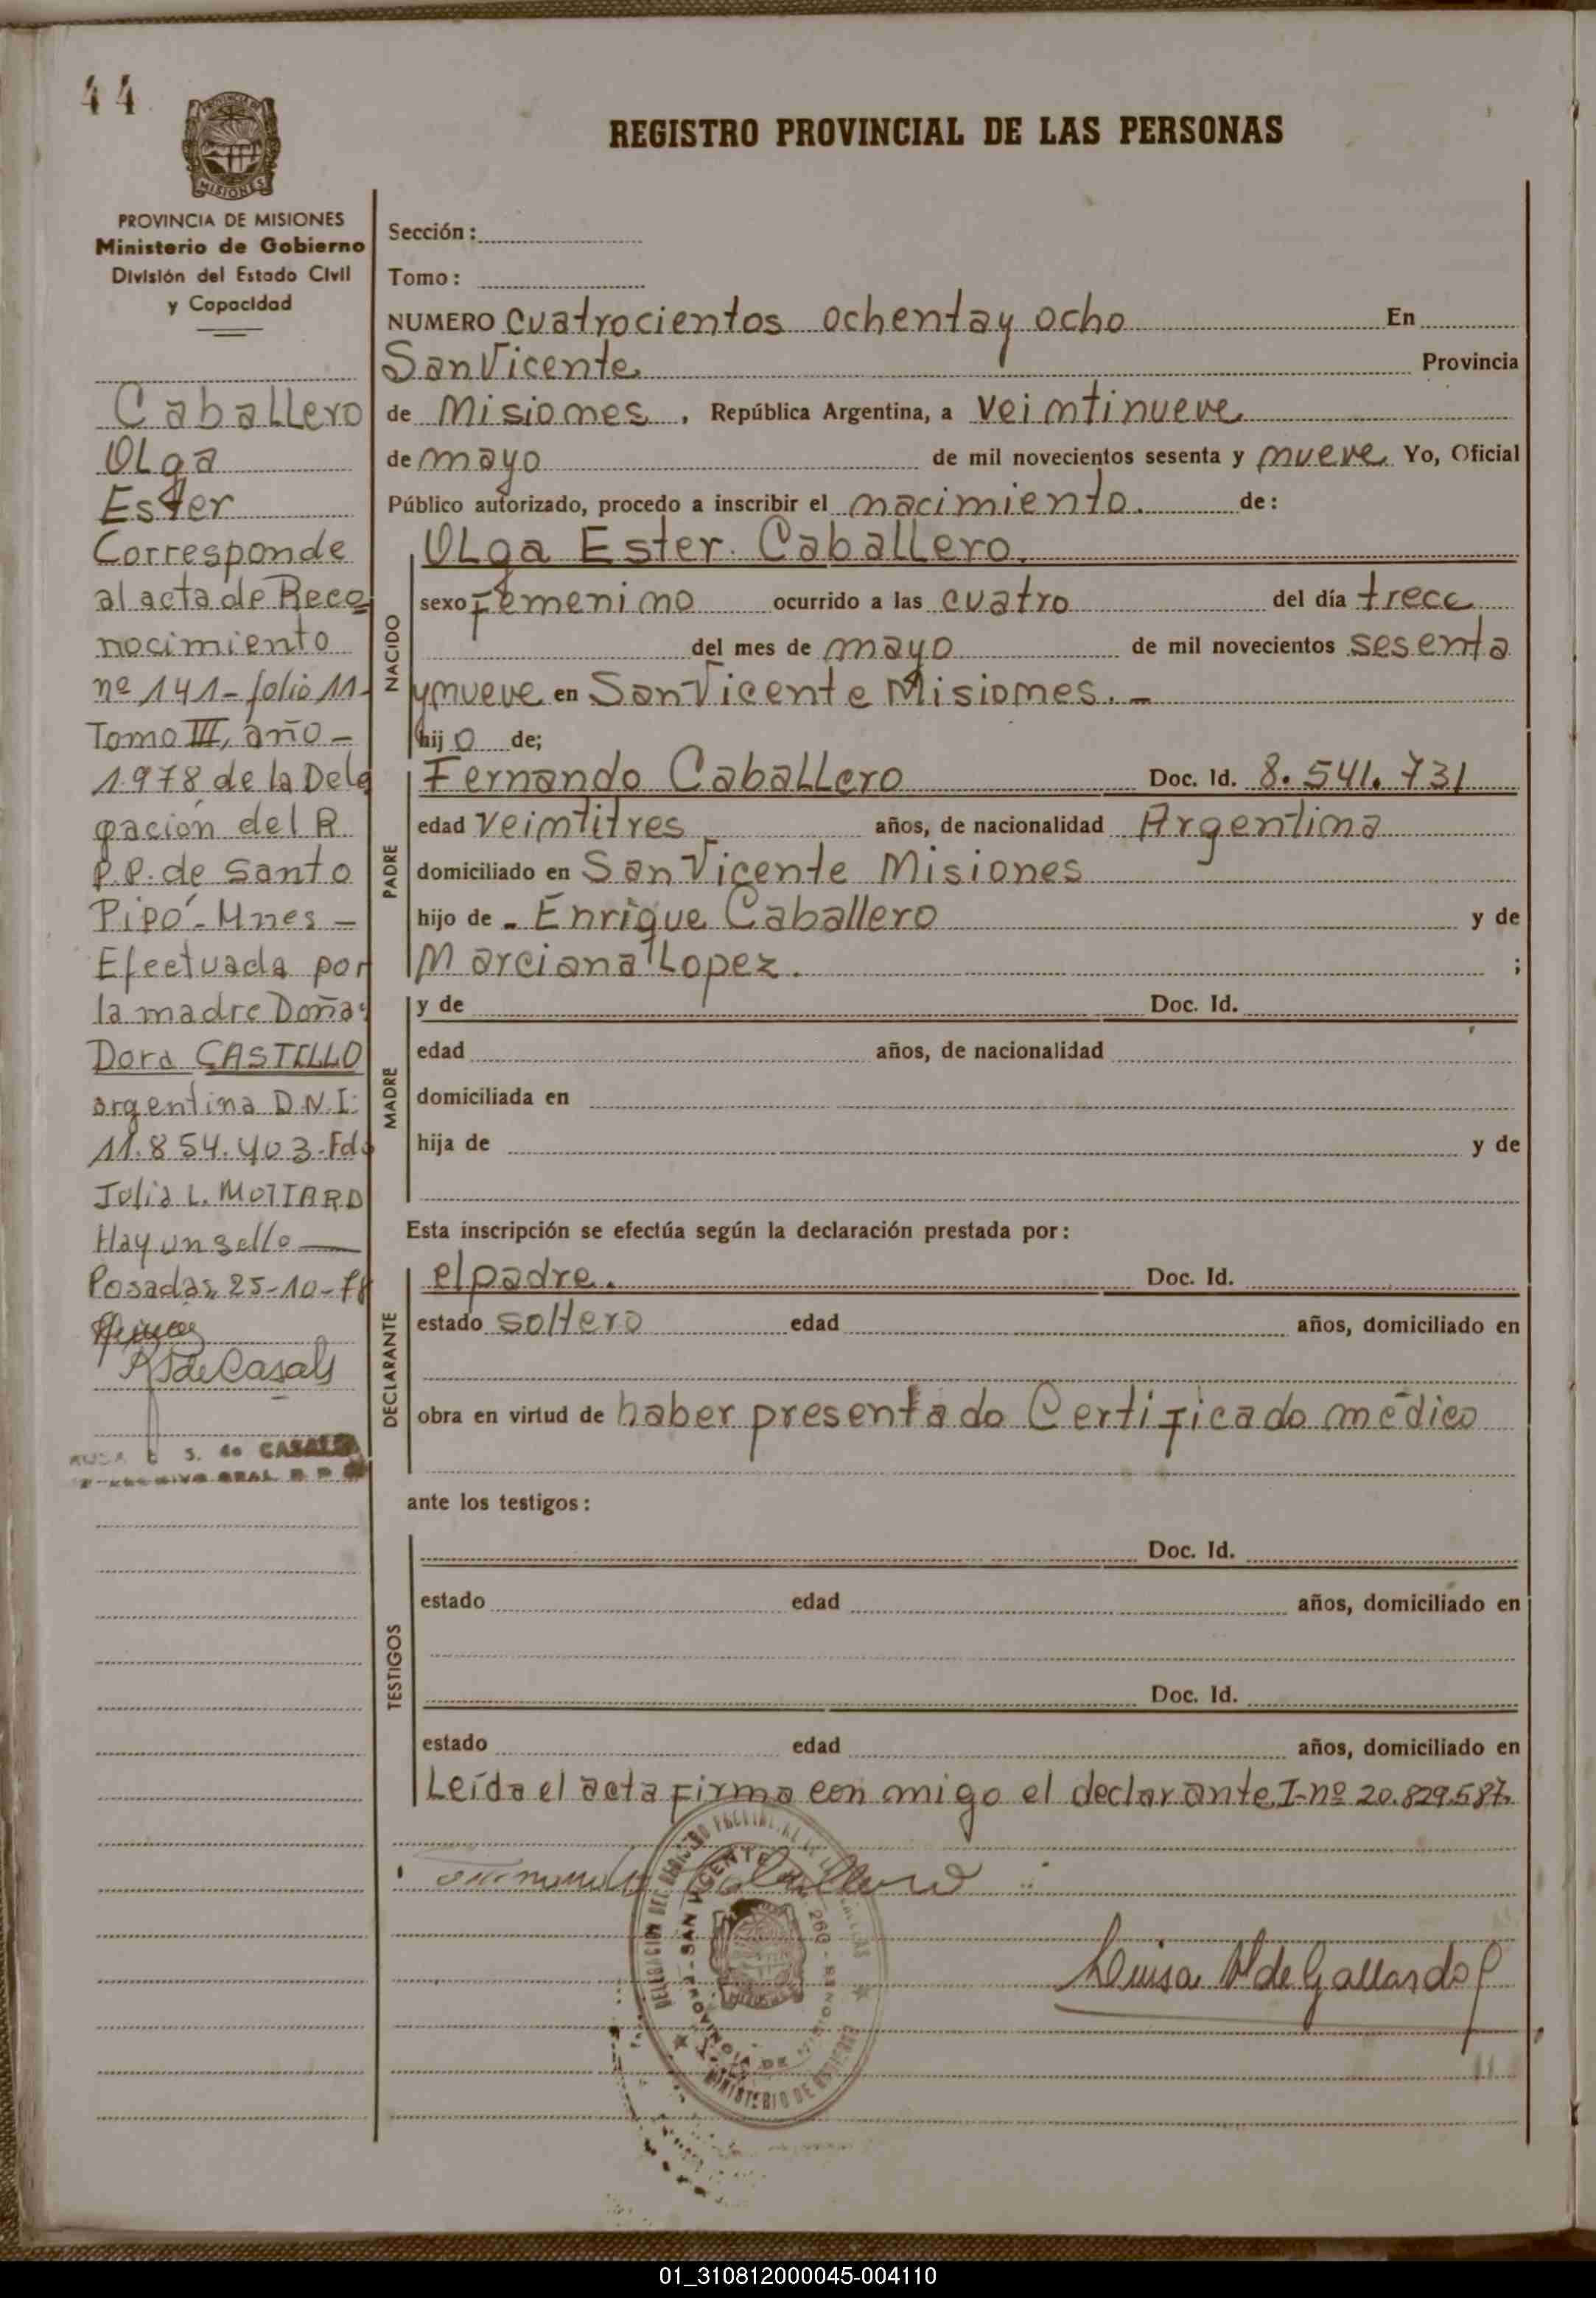 44
MISIONES
REGISTRO PROVINCIAL DE LAS PERSONAS
PROVINCIA DE MISIONES
Ministerio de Gobierno
División del Estado Civil
y Capacidad
Caballero
Olga
Ester
Corresponde
al acta de Reco
nocimiento
nº 141-folio 11-
Tomo III, año -
1978 de la Dele
gación del R.
P.P. de Santo
Pipó-Mnes-
Efectuada por
la madre Doña:
Dora CASTILLO
argentina D.N.I:
11.854.403-Fdo
Julia L. MOTTARD
Hay un sello
Posadas, 25-10-78
S. de Casals
S. de CASALS
GRAL.
Sección:
Tomo:
NUMERO cuatrocientos ochenta y ocho En
San Vicente Provincia
de Misiones, República Argentina, a Veintinueve
de mayo de mil novecientos sesenta y nueve Yo, Oficial
Público autorizado, procedo a inscribir el nacimiento. de:
NACIDO
Olga Ester Caballero.
sexo Femenino ocurrido a las cuatro del día trece
del mes de mayo de mil novecientos sesenta
y nueve en San Vicente Misiones.-
hijo de;
PADRE
Fernando Caballero Doc. Id. 8.541.731
edad veintitres años, de nacionalidad Argentina
domiciliado en San Vicente Misiones
hijo de - Enrique Caballero y de
Marciana Lopez. ;
MADRE
y de Doc. Id.
edad años, de nacionalidad
domiciliada en
hija de y de
Esta inscripción se efectúa según la declaración prestada por:
DECLARANTE
el padre. Doc. Id.
estado soltero edad años, domiciliado en
obra en virtud de haber presentado Certificado médico
ante los testigos:
TESTIGOS
Doc. Id.
estado edad años, domiciliado en
Doc. Id.
estado edad años, domiciliado en
Leída el acta firma con migo el declarante I-nº 20.829.587.
Fernando Caballero
SAN VICENTE
PROVINCIA DE MISIONES
MINISTERIO DE GOBIERNO
Luisa de Gallardo
01_310812000045-004110